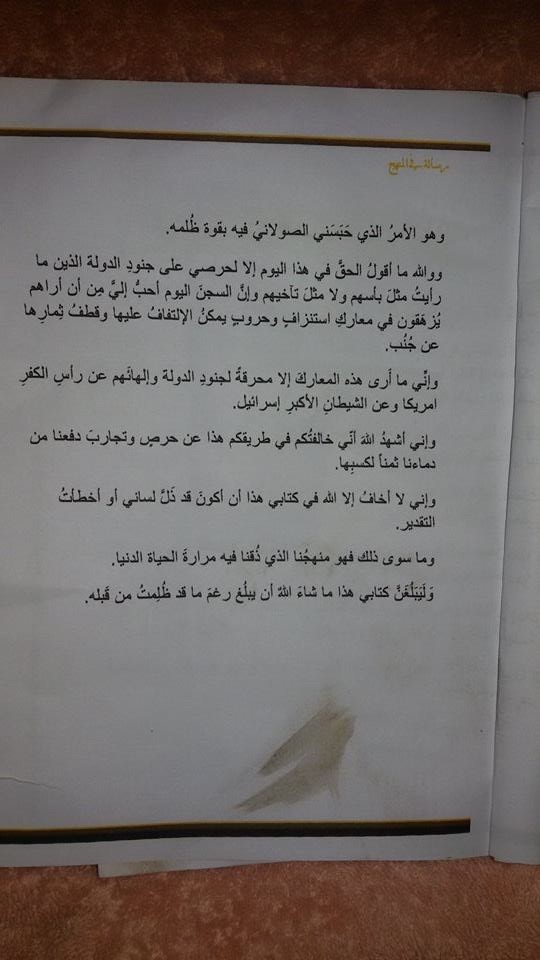 رسالة في المنهج
وهو الأمرُ الذي حَبَسَني الصولانيُ فيه بقوة ظُلمه.
ووالله ما أقولُ الحقَّ في هذا اليوم إلا لحرصي على جنودِ الدولة الذين ما
رأيتُ مثلَ بأسهم ولا مثلَ تآخيهم وإنَّ السجنَ اليوم أحبُّ إليَّ مِن أن أراهم
يُزهَقون في معاركِ استنزافٍ وحروبٍ يمكنُ الإلتفافُ عليها وقطفُ ثِمارِها
عن جُنُب.
وإنِّي ما أرى هذه المعاركَ إلا محرقةً لجنودِ الدولة وإلهائَهم عن رأسِ الكفرِ
امريكا وعن الشيطانِ الأكبرِ إسرائيل.
وإني أشهدُ اللهَ أنّي خالفتُكم في طريقكم هذا عن حرصٍ وتجاربَ دفعنا من
دماءنا ثمناً لكسبِها.
وإني لا أخافُ إلا الله في كتابي هذا أن أكونَ قد ذَلَّ لساني أو أخطأتُ
التقدير.
وما سوى ذلك فهو منهجُنا الذي ذُقنا فيه مرارةَ الحياة الدنيا.
وَلَيَبْلُغَنَّ كتابي هذا ما شاءَ اللهُ أن يبلُغ رغمَ ما قد ظُلِمتُ من قَبله.